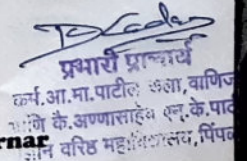 प्रभारी प्राचार्य
कर्म.आ.मा.पाटील कला, वाणिज
आणि कै.अण्णासाहेब एन.के.पाटी
rnar
ज्ञान वरिष्ठ महाविद्यालय, पिंपळ